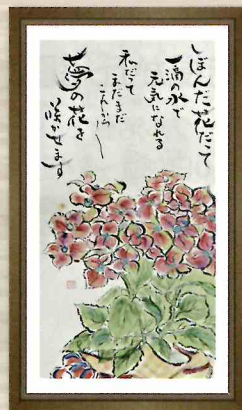 しぼんだ花だって
一滴の水で
元気になれる
私だって
まだまだ
これから
夢の花を
咲かせます